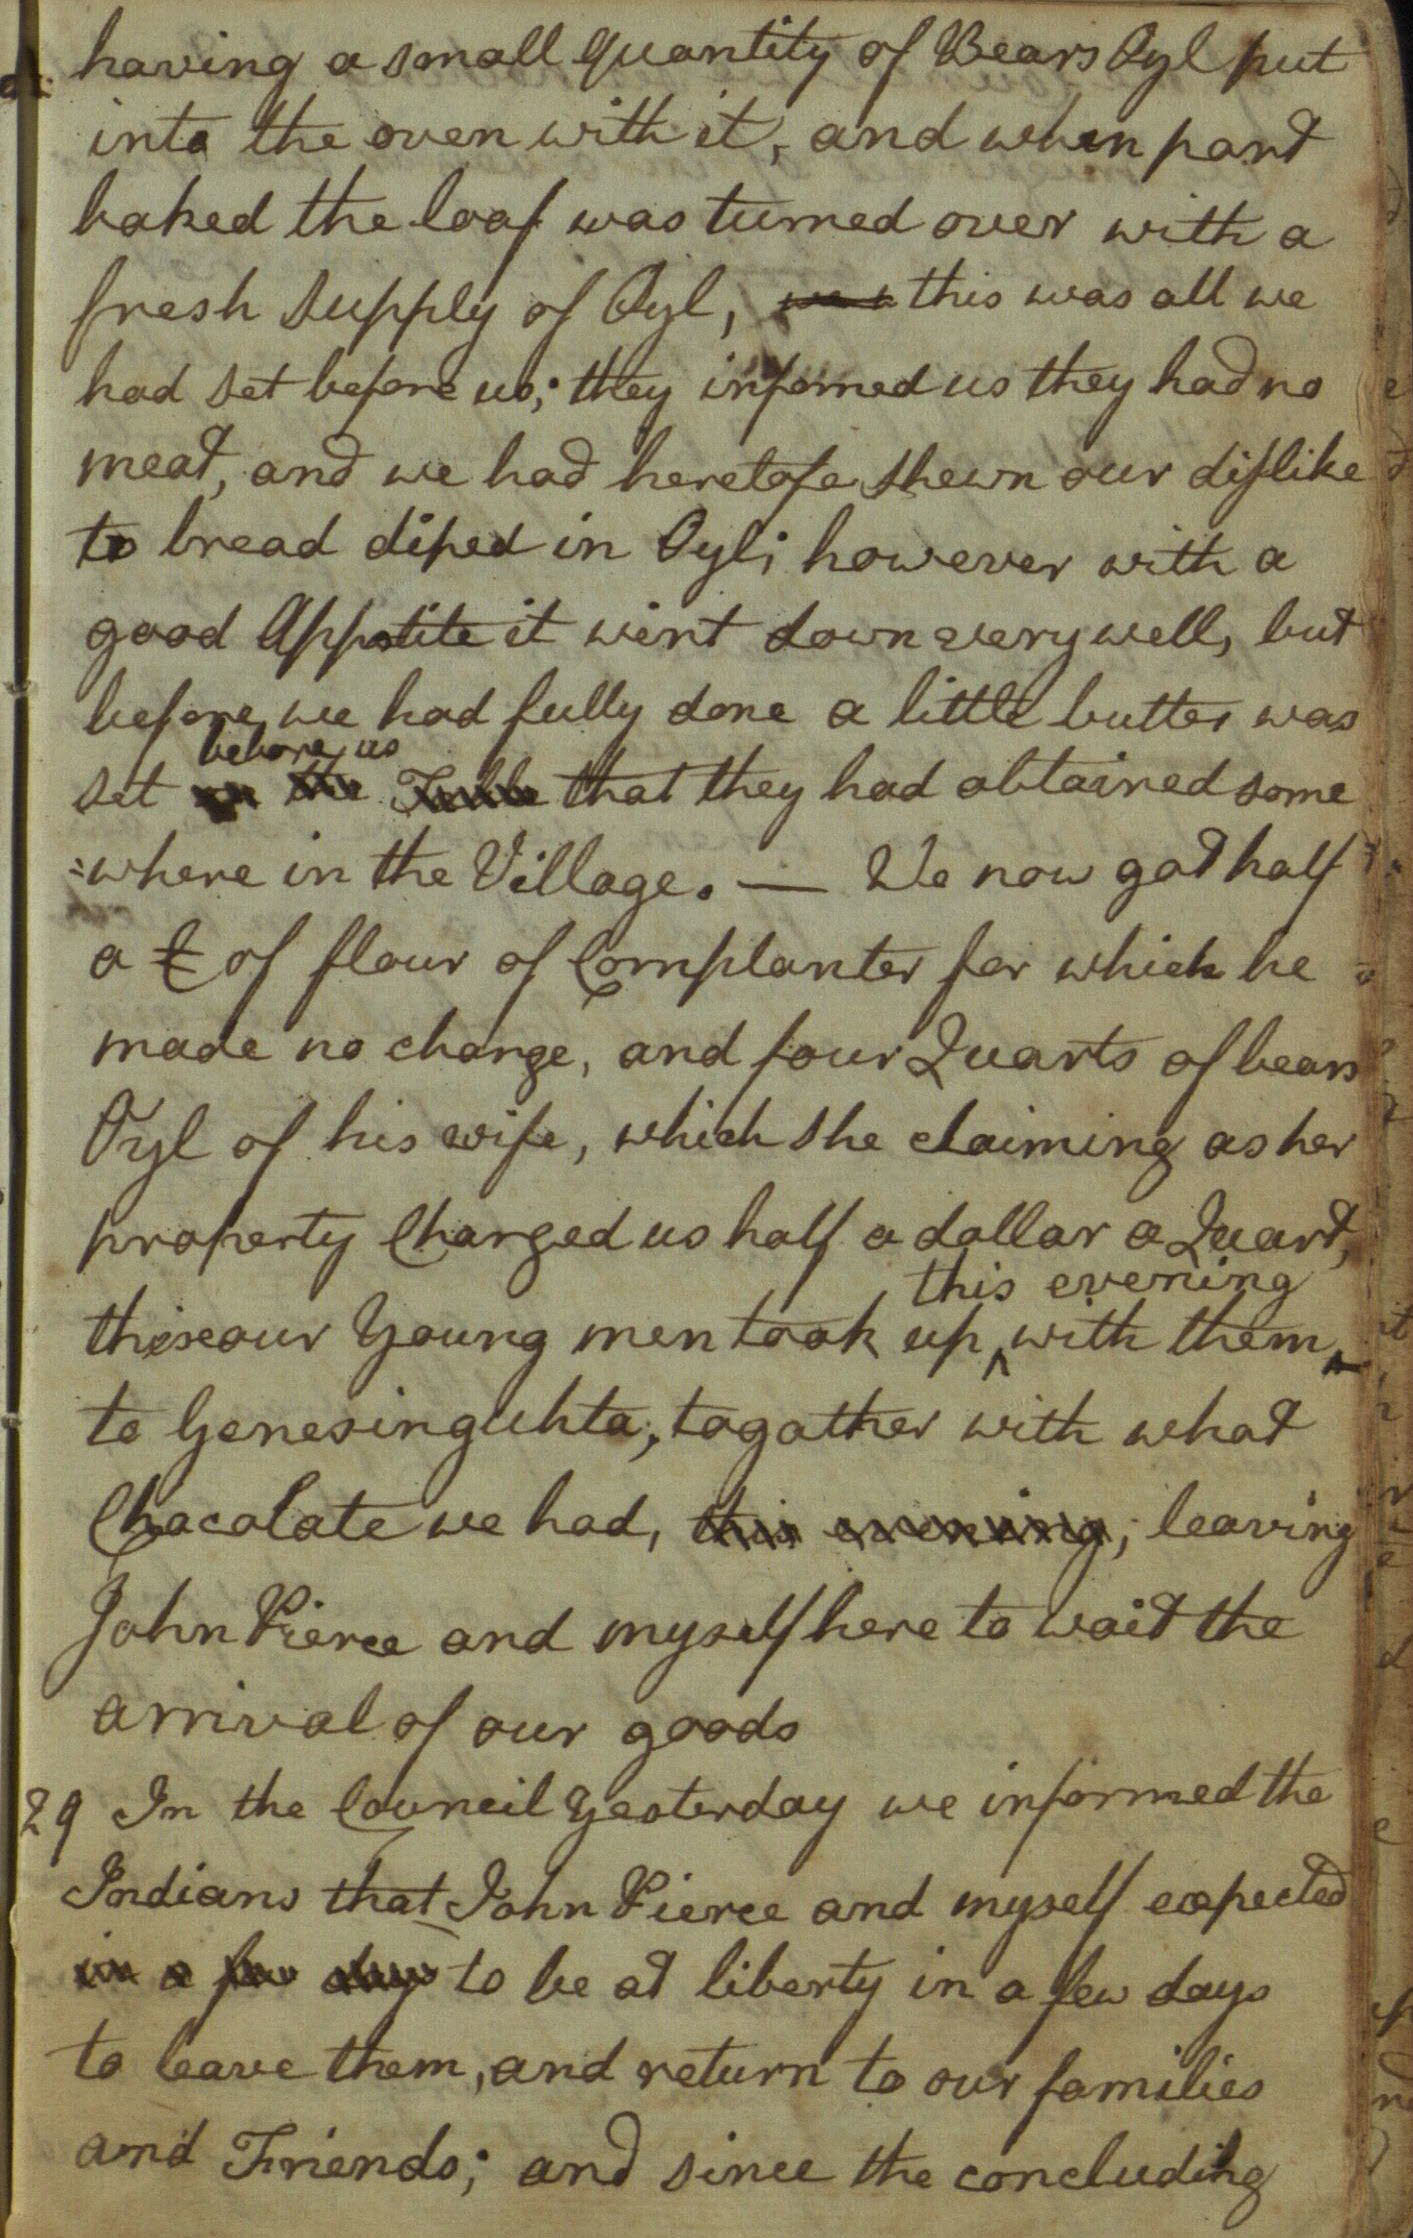 having a small quantity of Bears Oyl put
into the oven with it, and when part
baked the loaf was turned over with a
fresh supply of Oyl, this was all we
had set before us; they informed us they had no
meat, and we had heretofe shewn our dislike
to bread diped in Oyl; however with a
good Appetite it went down very well, but
before we had fully done a little butter was
before us
set on the Table that they had obtained some
=where in the Village. — We now got half
a ₶ of flour of Cornplanter for which he
made no charge, and four Quarts of bears
Oyl of his wife, which she claiming as her
property Charged us half a dollar a Quart,
this evening
these our Young men took up ‸ with them
to Genesinguhta, togather with what
Chacolate we had, this evening; leaving
John Pierce and myself here to wait the
arrival of our goods
29 In the Council Yesterday we informed the
Indians that John Pierce and myself expected
in a few days to be at liberty in a few days
to leave them, and return to our families
and Friends; and since the concluding